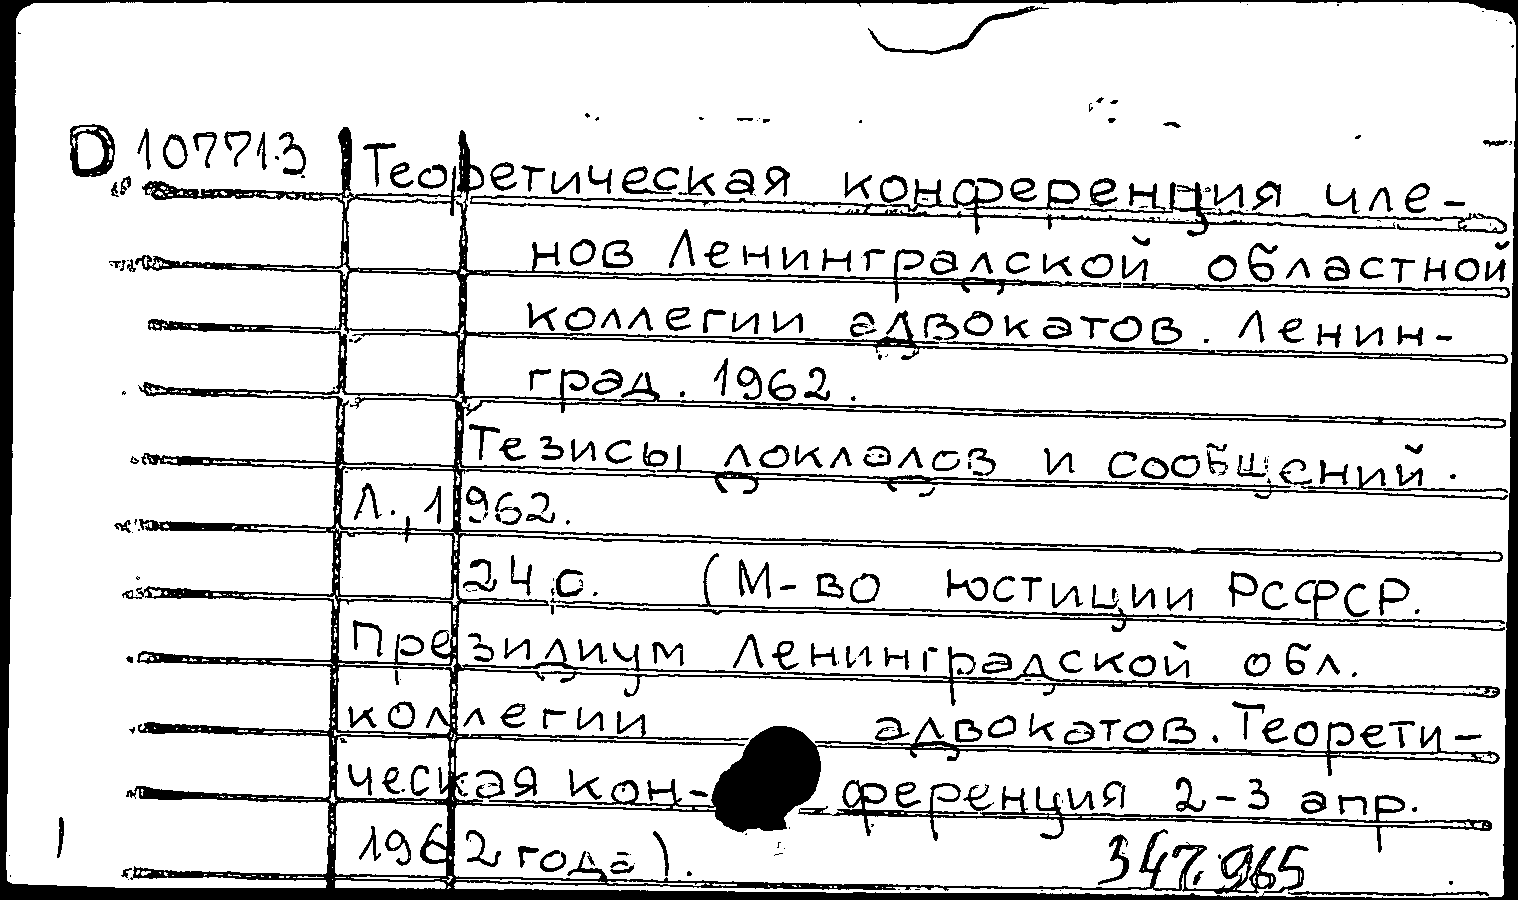 D 107713 Теоретическая конференция чле-
нов Ленинградской областной
коллегии адвокатов. Ленин-
град. 1962.
Тезисы докладов и сообщений.
Л., 1962.
24 с. (М-во юстиции РСФСР.
Президиум Ленинградской обл.
коллегии адвокатов. Теорети-
ческая кон- ференция 2-3 апр.
1962 года).
347.965